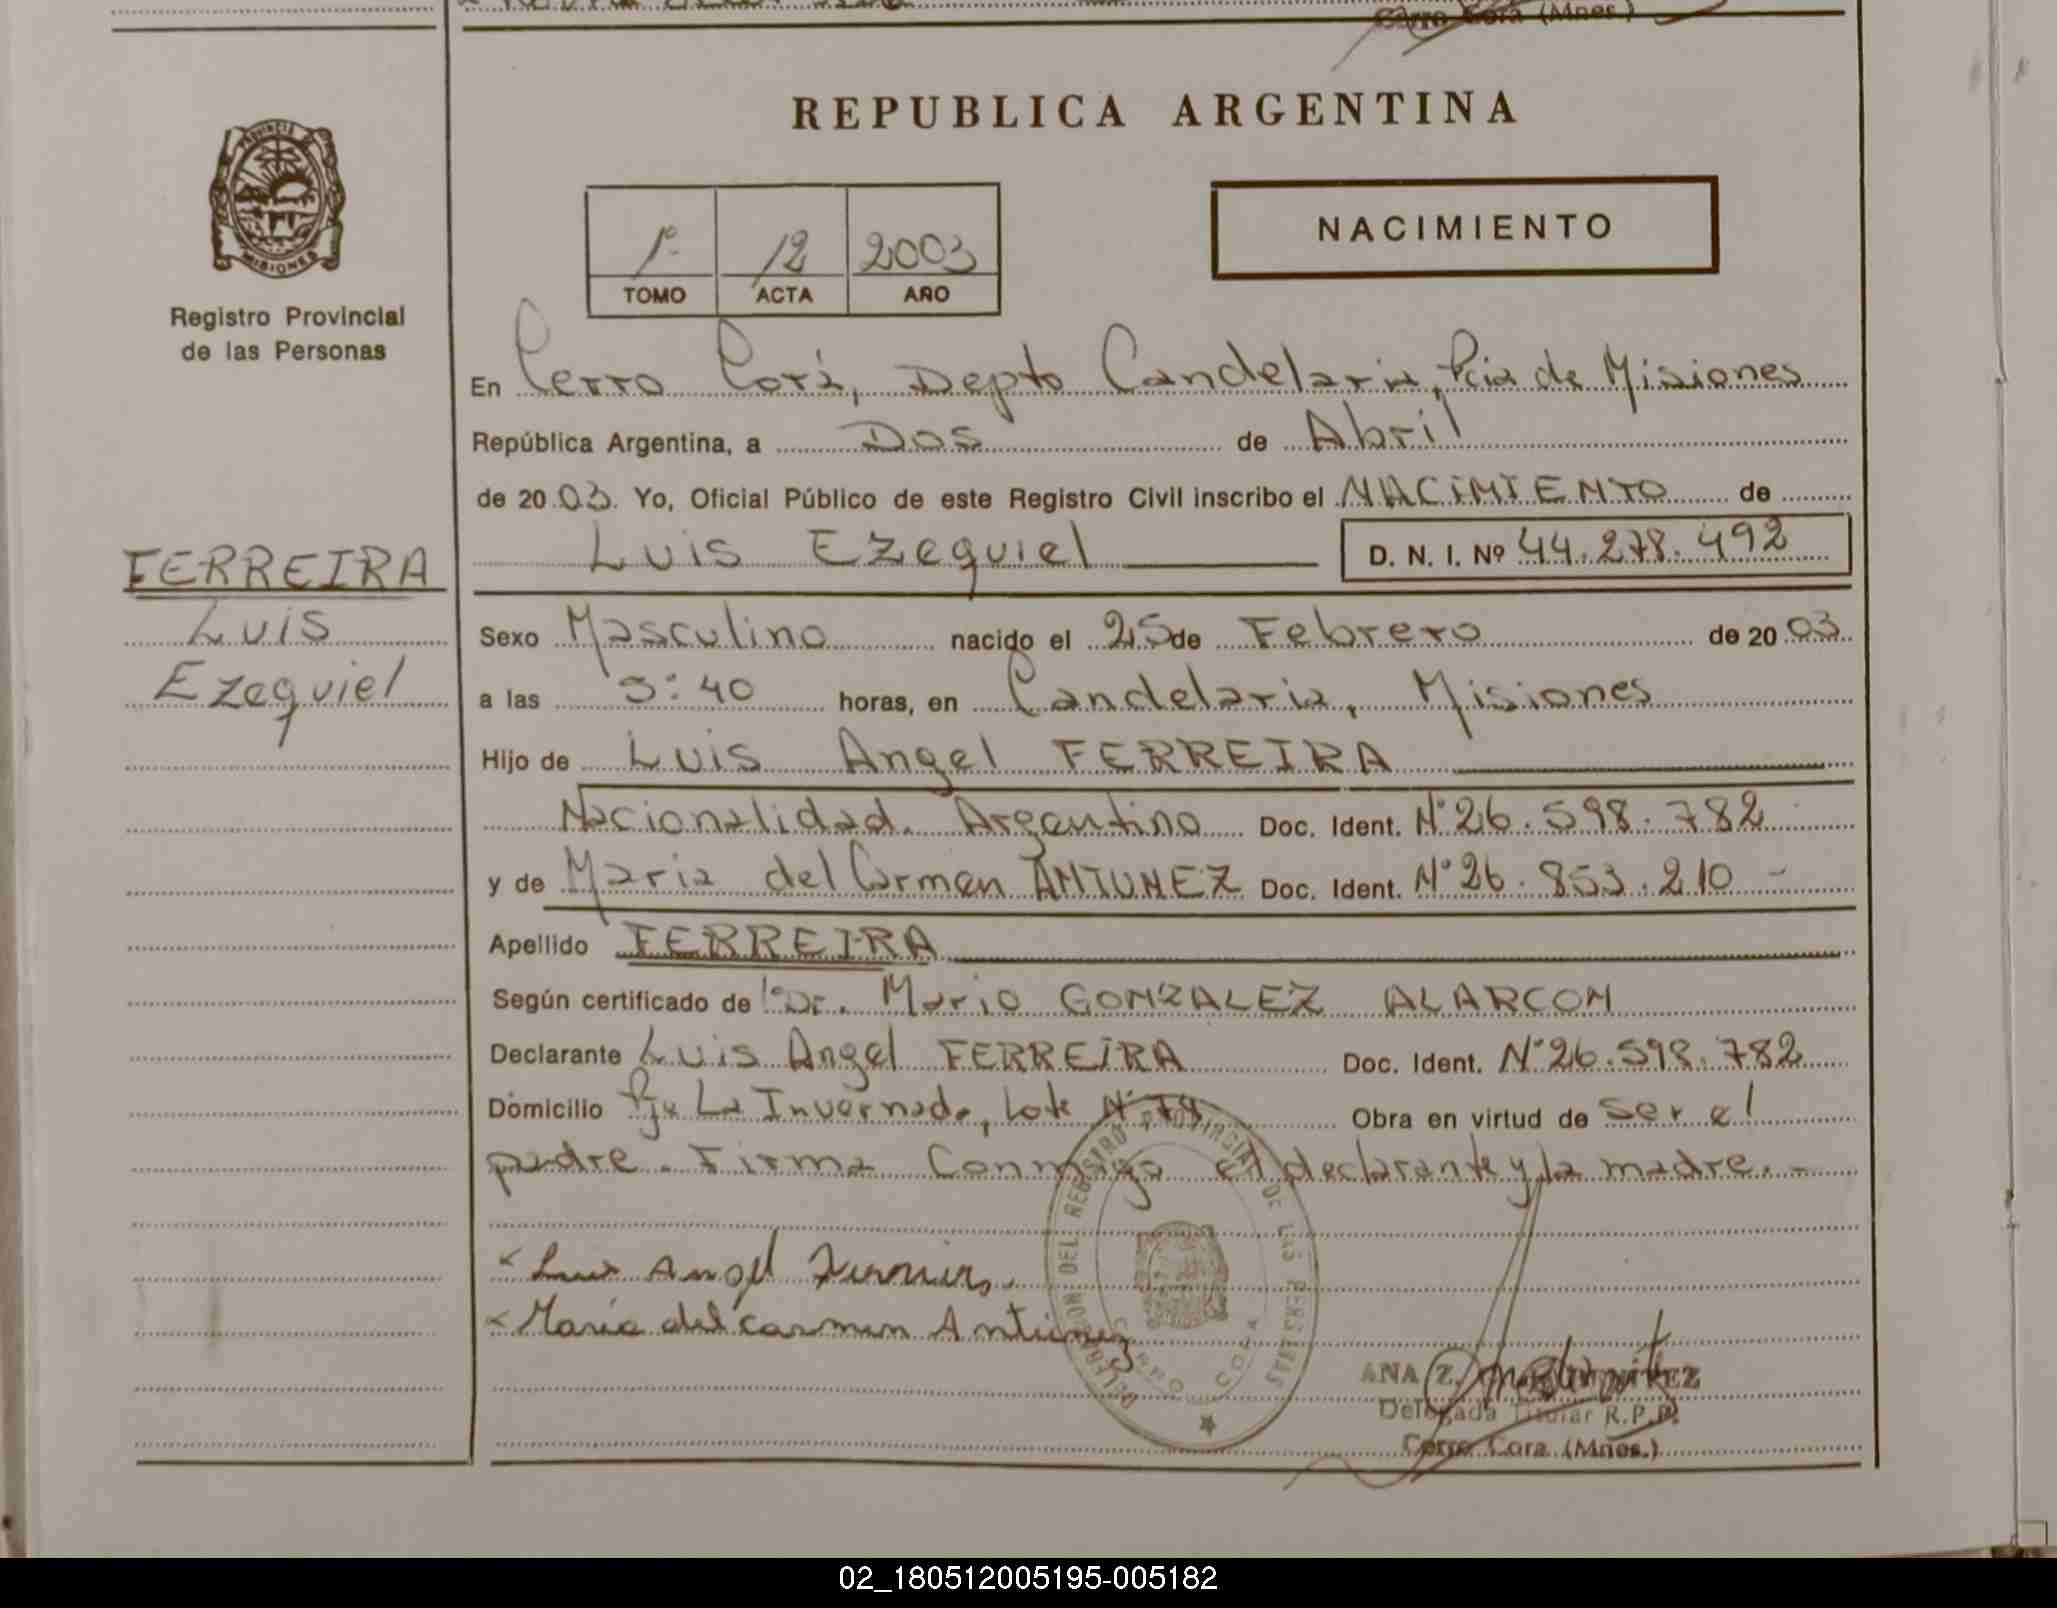 Cerro Cora (Mnes.)
REPUBLICA ARGENTINA
PROVINCIA DE
MISIONES
Registro Provincial
de las Personas
1º
12
2003
TOMO
ACTA
AÑO
NACIMIENTO
En Cerro Corá, Depto Candelaria, Pcia de Misiones
República Argentina, a Dos de Abril
de 2003. Yo, Oficial Público de este Registro Civil inscribo el NACIMIENTO de
Luis Ezequiel D. N. I. Nº 44.278.492
FERREIRA
Luis
Ezequiel
Sexo Masculino nacido el 25 de Febrero de 2003
a las 3:40 horas, en Candelaria, Misiones
Hijo de Luis Angel FERREIRA
Nacionalidad. Argentino Doc. Ident. Nº 26.598.782
y de Maria del Carmen ANTUNEZ Doc. Ident. Nº 26.853.210 -
Apellido FERREIRA
Según certificado de Dr. Mario GONZALEZ ALARCON
Declarante Luis Angel FERREIRA Doc. Ident. Nº 26.598.782
Domicilio La Invernada, Lote Nº Obra en virtud de ser el
padre. Firma Conmigo el declarante y la madre. -
Luis Angel Ferreira
María del Carmen Antúnez
DELEGACION DEL REGISTRO PROVINCIAL DE LAS PERSONAS
CERRO CORA
ANA Z.
Delegada Titular R.P.P.
Cerro Cora (Mnes.)
02_180512005195-005182